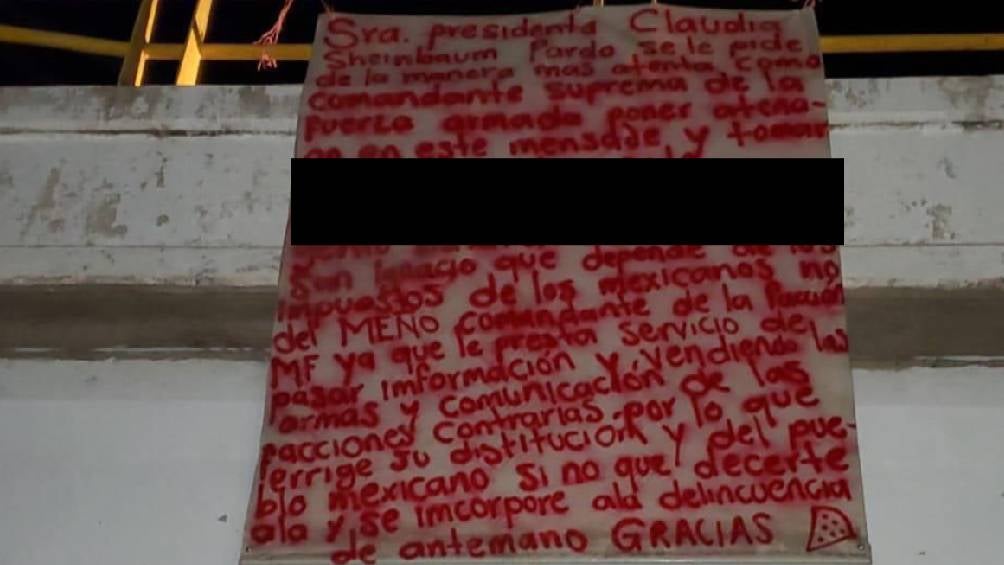 Sra. presidenta Claudia
Sheinbaum Pardo se le pide
de la manera mas atenta como
comandante suprema de la
fuerza armada poner atena-
on en este mensaje y tomar
que depende de los
impuestos de los mexicanos no
del MENO comandante de la faccion
MF ya que le presta servicio de
pasar información y vendiendo las
armas y comunicación de las
facciones contrarias por lo que
ferrige su distitución y del pue-
blo mexicano si no que decerte
ala y se imcorpore ala delincuencia
de antemano GRACIAS